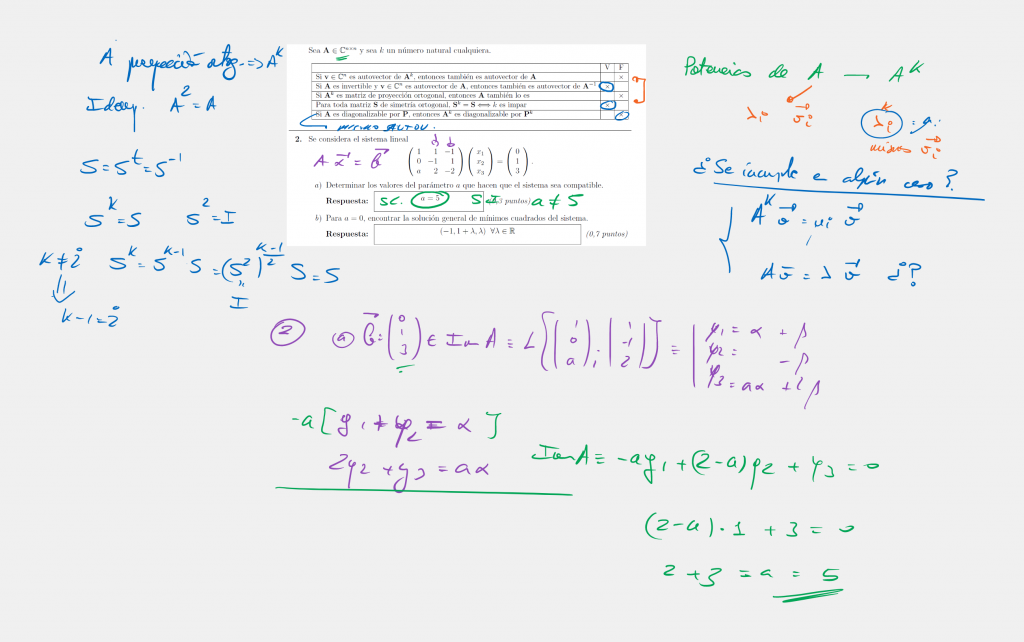 A proyección ortog. => A^k
Idemp. A^2 = A
S = S^t = S^-1
S^k = S S^2 = I
k ≠ 2̇ S^k = S^(k-1) S = (S^2)^((k-1)/2) S = S
⇓ I
k-1 = 2̇
Sea A ∈ ℂ^(n×n) y sea k un número natural cualquiera.
V F
Si v ∈ ℂ^n es autovector de A^k, entonces también es autovector de A ×
Si A es invertible y v ∈ ℂ^n es autovector de A, entonces también es autovector de A^-1 ×
Si A^k es matriz de proyección ortogonal, entonces A también lo es ×
Para toda matriz S de simetría ortogonal, S^k = S ⟺ k es impar ×
Si A es diagonalizable por P, entonces A^k es diagonalizable por P^k
mismo autov.
2. Se considera el sistema lineal
A x = b
( 1 1 -1 ) ( x1 ) ( 0 )
( 0 -1 1 ) ( x2 ) = ( 1 ) .
( a 2 -2 ) ( x3 ) ( 3 )
a) Determinar los valores del parámetro a que hacen que el sistema sea compatible.
Respuesta: SC. a = 5 SI puntos) a ≠ 5
b) Para a = 0, encontrar la solución general de mínimos cuadrados del sistema.
Respuesta: (-1, 1 + λ, λ) ∀λ ∈ ℝ (0,7 puntos)
Potencias de A → A^k
λi, vi λi^k
mismos vi
¿Se incumple e algún caso?
A^k v = μi v
A v = λ v ¿?
② ⓐ b = (0 1 3) ∈ Im A ≡ L{(1 0 a), (1 -1 2)} ≡
y1 = α + β
y2 = - β
y3 = aα + 2β
-a [y1 + y2 = α]
2y2 + y3 = aα
Im A ≡ -ay1 + (2-a)y2 + y3 = 0
(2-a)·1 + 3 = 0
2 + 3 = a = 5